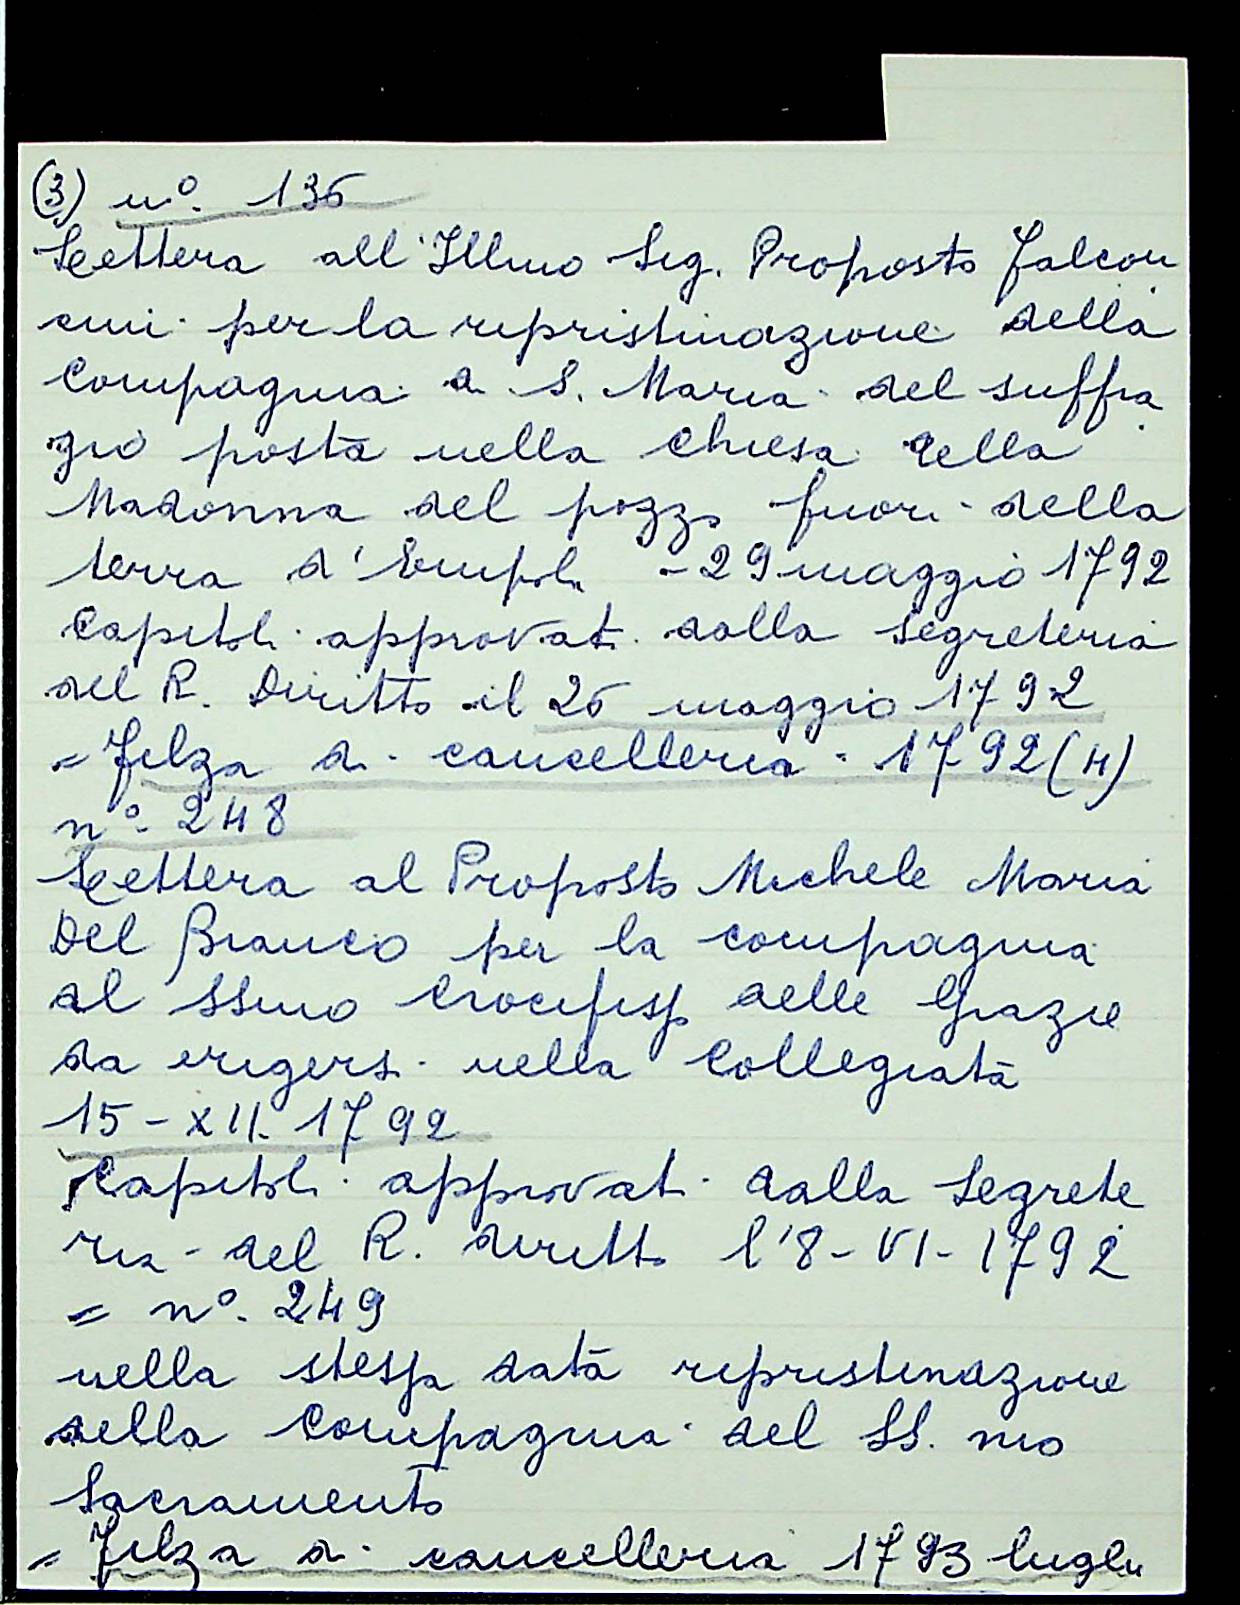 (3) nº. 136
Lettera all'Illmo Sig. Proposto Falcon
cini per la ripristinazione della
Compagnia di S. Maria del suffra
gio posta nella chiesa della
Madonna del pozzo fuori della
terra d'Empoli - 29 maggio 1792
Capitoli approvati dalla Segreteria
del R. Diritto il 26 maggio 1792
= Filza di cancelleria 1792 (4)
nº. 248
Lettera al Proposto Michele Maria
Del Bianco per la compagnia
al SSmo Crocifisso delle Grazie
da erigersi nella Collegiata
15-XII. 1792
Capitoli approvati dalla Segrete
ria del R. diritto l'8-VI-1792
= nº. 249
nella stessa data ripristinazione
della Compagnia del SS. mo
Sacramento
= Filza di cancelleria 1793 luglio